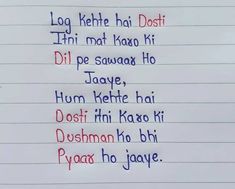 Log Kehte hai Dosti
Itni mat Karo Ki
Dil pe sawaar Ho
Jaaye,
Hum Kehte hai
Dosti itni Karo Ki
Dushman Ko bhi
Pyaar ho jaaye.